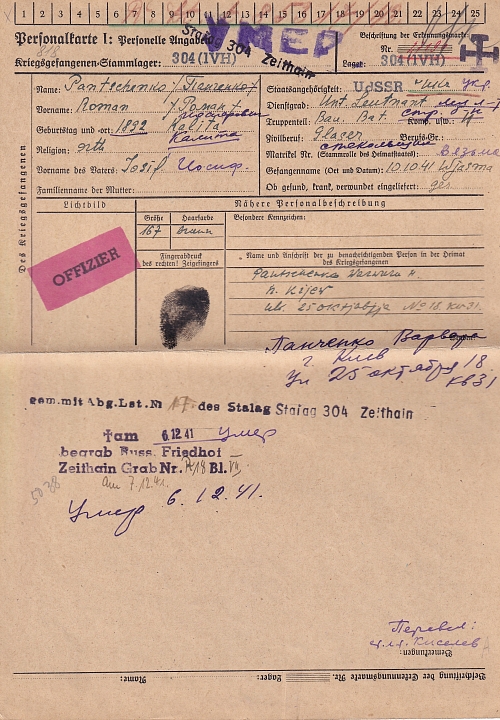 1 2 3 4 5 6 7 8 9 10 11 12 13 14 15 16 17 18 19 20 21 22 23 24 25
Personalkarte I: Personelle Angaben
Kriegsgefangenen-Stammlager: 304 (IV H)
УМЕР
Stalag 304 Zeithain
Beschriftung der Erkennungsmarke
Nr.
Lager: 304 (IV H)
Des Kriegsgefangenen
Name: Pantschenko / Панченко
Vorname: Roman / Роман
Иосифович
Geburtstag und -ort: 1892 Kalita
Калита
Religion: orth
Vorname des Vaters: Iosif Иосиф.
Familienname der Mutter:
Staatsangehörigkeit: UdSSR
Dienstgrad: Unt. Leutnant
Truppenteil: Bau. Bat. Komp. usw.:
Zivilberuf: Glaser Berufs-Gr.:
стекольщик
Matrikel Nr. (Stammrolle des Heimatstaates): Вязьма
Gefangennahme (Ort und Datum): 10.10.41 Wjasma
Ob gesund, krank, verwundet eingeliefert: ges
Lichtbild
OFFIZIER
Nähere Personalbeschreibung
Größe Haarfarbe Besondere Kennzeichen:
167 braun
Fingerabdruck
des rechten! Zeigefingers
Name und Anschrift der zu benachrichtigenden Person in der Heimat
des Kriegsgefangenen
Pantschenko Warwara
Kijev
ul. 25 Oktjabrja No 18. kw. 31
Панченко Варвара
г. Киев
Ул 25 октября 18
кв 31
gem. mit Abg. Lst. Nr. des Stalag Stalag 304 Zeithain
✝ am 6.12.41 умер
begrab Russ. Friedhof
Zeithain Grab Nr. Bl.
Am 7.12.41.
Умер 6.12.41.
Перевел:
Киселев
Bemerkungen:
Name:
Lager:
Beschriftung der Erkennungsmarke Nr.